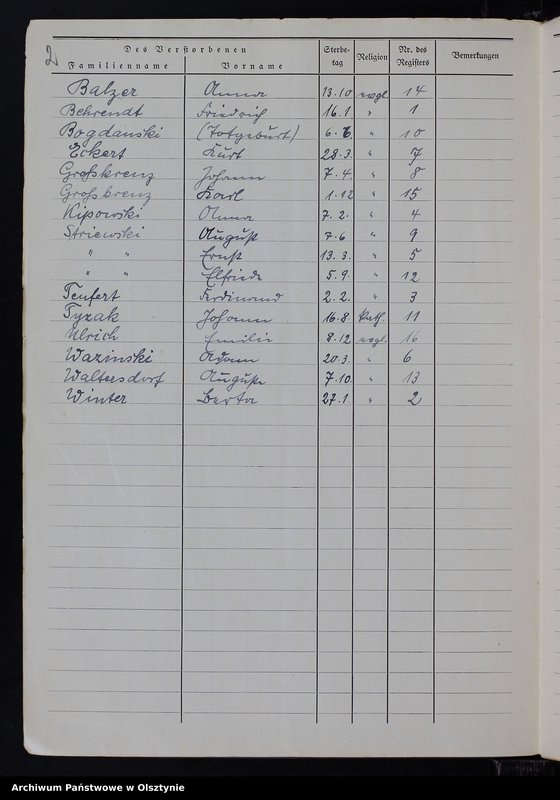 2
Des Verstorbenen
Familienname Vorname Sterbetag Religion Nr. des Registers Bemerkungen
Balzer Anna 13.10 evgl. 14
Behrendt Friedrich 16.1. " 1
Bogdanski (Totgeburt) 6.7. " 10
Eckert Kurt 28.3. " 7
Großkrenz Johann 7.4. " 8
Großkrenz Karl 1.12 " 15
Kipowski Anna 7.2. " 4
Striewski August 7.6 " 9
" " Ernst 13.3. " 5
" " Elfriede 5.9. " 12
Teufert Ferdinand 2.2. " 3
Tyzak Johann 16.8. kath. 11
Ulrich Emilie 8.12. evgl. 16
Wazinski Adam 20.3. " 6
Waltersdorf Auguste 7.10. " 13
Winter Berta 27.1. " 2
Archiwum Państwowe w Olsztynie